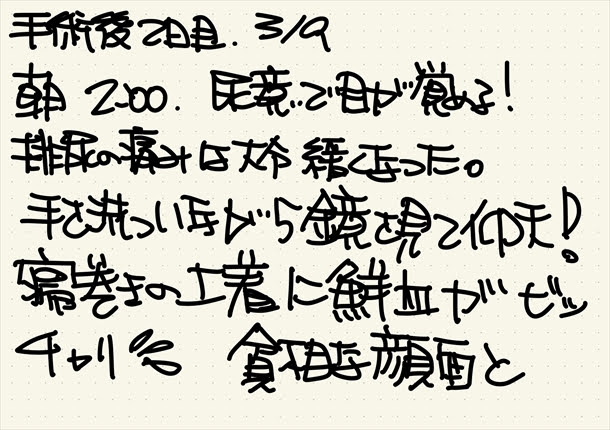 手術後2日目. 3/9
朝 2:00. 尿意で目が覚める!
排尿の痛みは大分緩くなった。
手を洗いながら鏡を見て仰天!
寝巻きの上着に鮮血がビッ
チャリ💦 貧相な顔面と